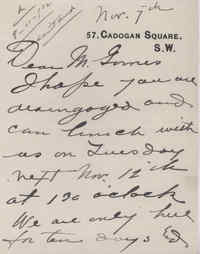 Nov. 7th
57, CADOGAN SQUARE.
S.W.
Dear M.
I hope you are
disengaged and
can lunch with
us on Tuesday
next Nov. 12th
at 1.30 o'clock
We are only here
for ten days